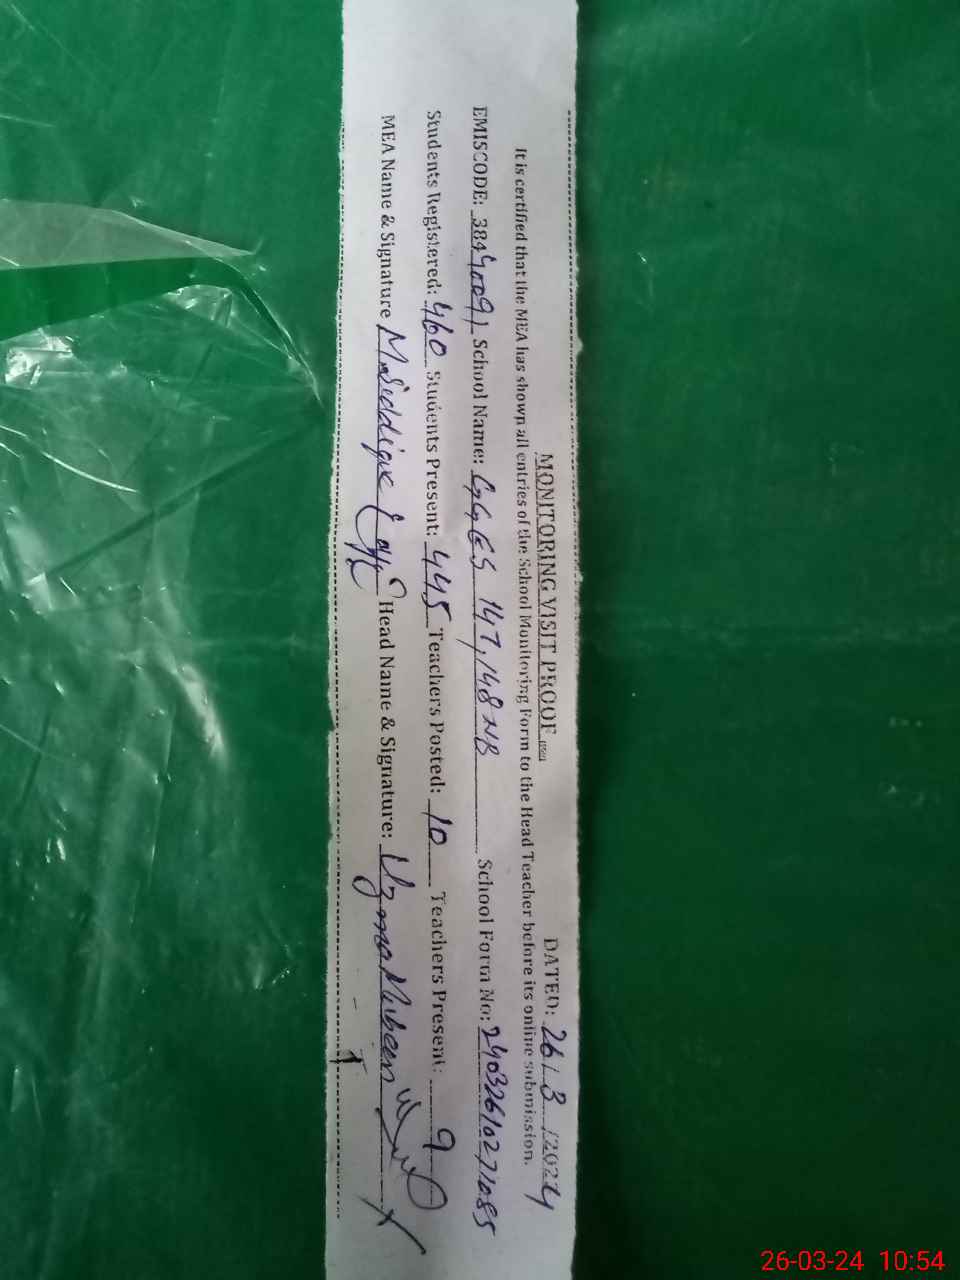 MONITORING VISIT PROOF DATED: 26/3/2024
It is certified that the MEA has shown all entries of the School Monitoring Form to the Head Teacher before its online submission.
EMISCODE: 38440091 School Name: GGES 147,148 NB School Form No: 24032610271085
Students Registered: 460 Students Present: 445 Teachers Posted: 10 Teachers Present: 9
MEA Name & Signature M. Siddique Head Name & Signature: Uzma Mubeen
26-03-24 10:54